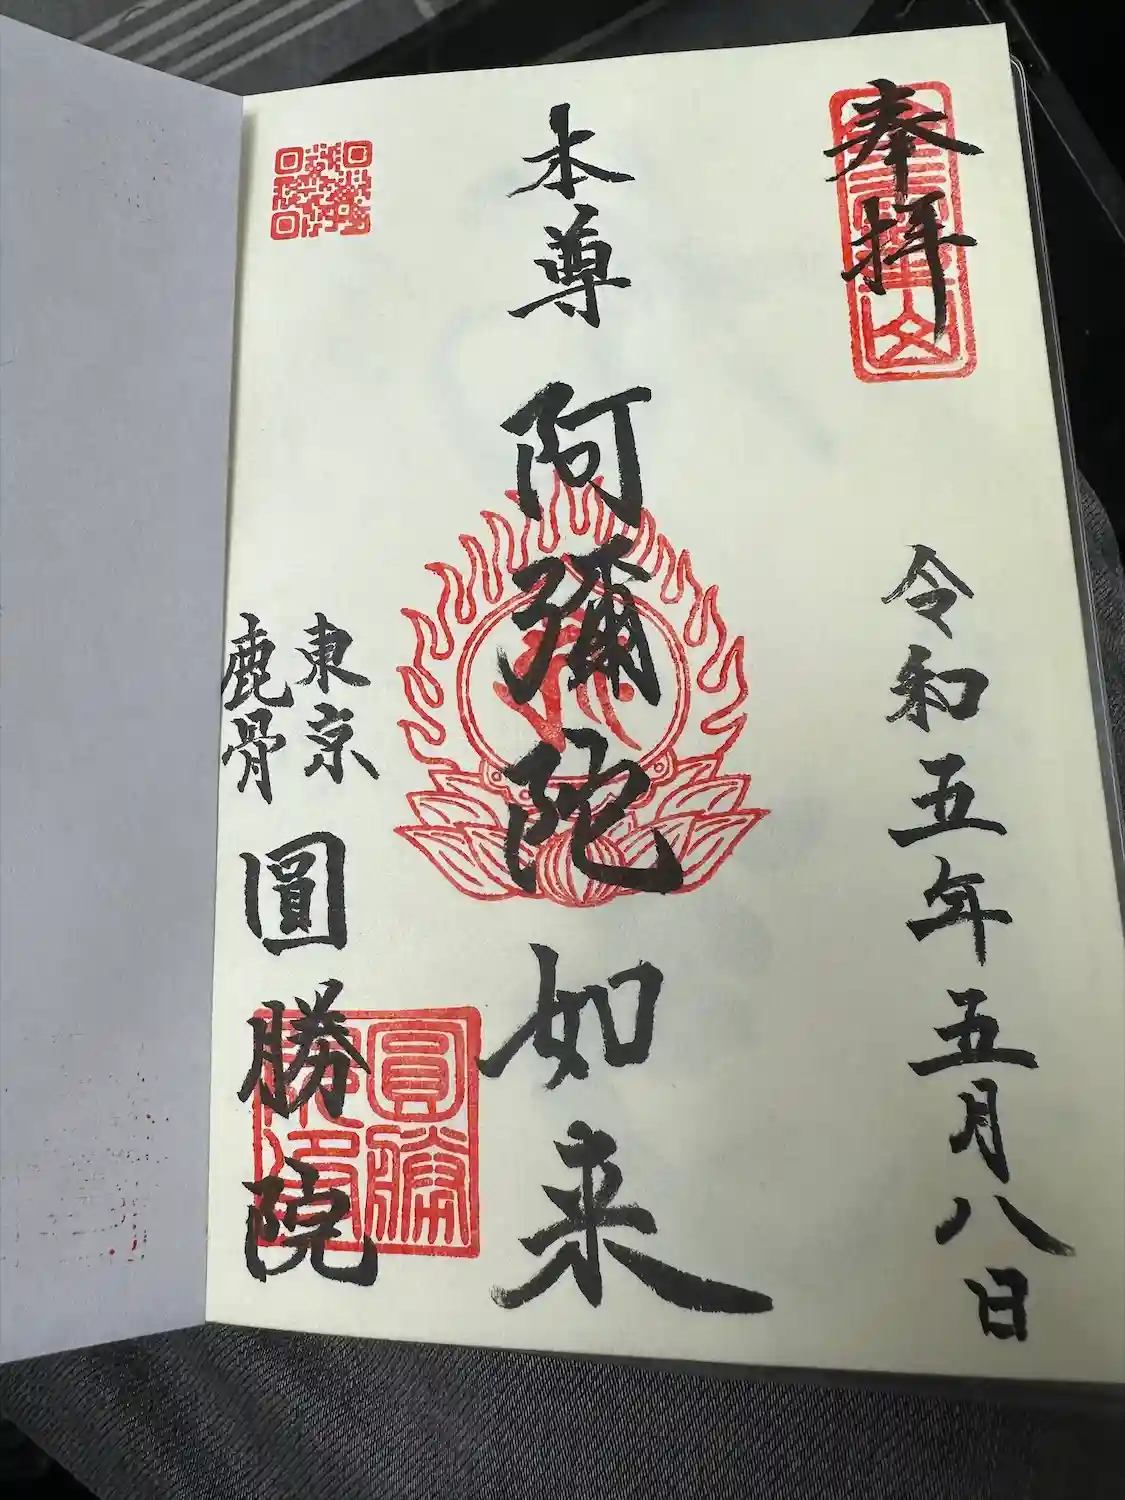 奉拝
令和五年五月八日
本尊 阿彌陀如来
東京
鹿骨
圓勝院
圓勝